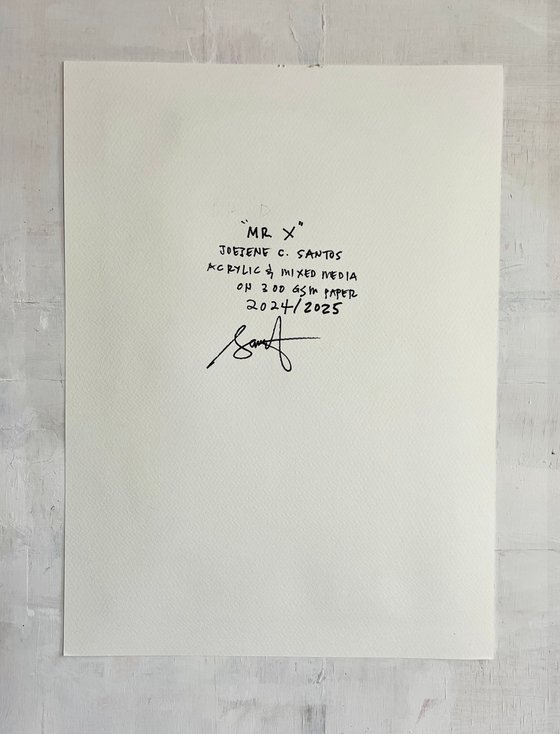 "MR X"
JOEJENE C. SANTOS
ACRYLIC & MIXED MEDIA
ON 300 GSM PAPER
2024/2025